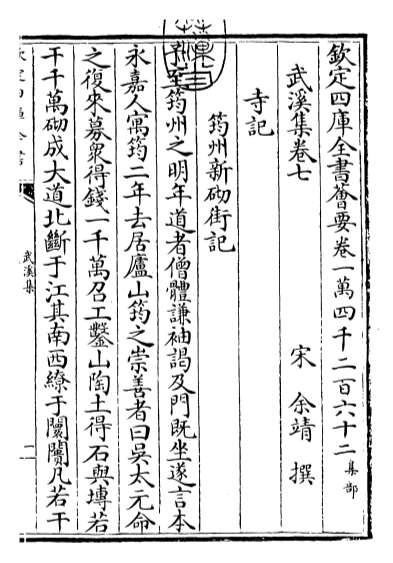 欽定四庫全書薈要卷一萬四千二百六十二 集部
武溪集卷七
宋 余靖 撰
寺記
筠州新砌街記
新至筠州之明年道者僧體謙袖謁及門既坐遂言本
永嘉人寓筠二年去居廬山筠之崇善者曰吳太元命
之復來募衆得錢一千萬召工鑿山陶土得石與塼若
干千萬砌成大道北斷于江其南西繚于闤闠凡若干
武溪集